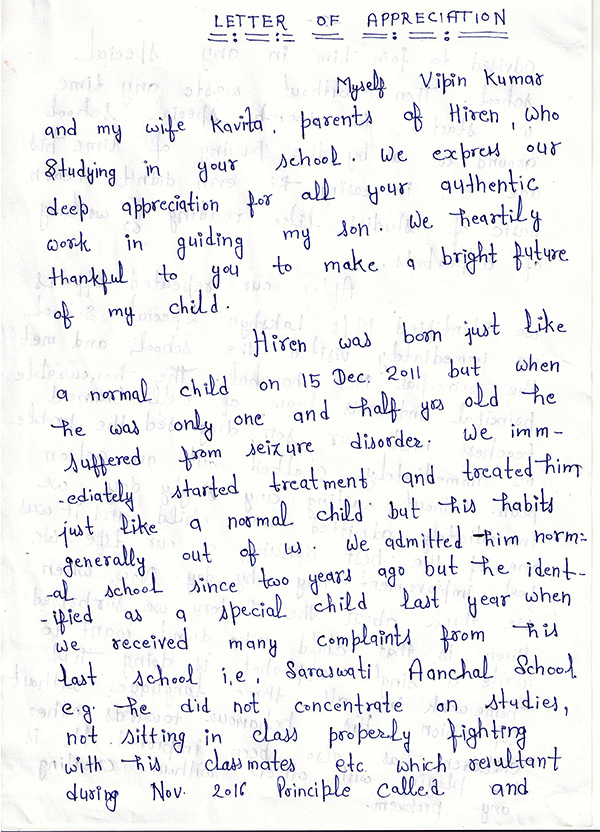 LETTER OF APPRECIATION
Myself Vipin Kumar
and my wife Kavita, parents of Hiren, who
studying in your school. We express our
deep appreciation for all your authentic
work in guiding my son. We heartily
thankful to you to make a bright future
of my child.
Hiren was born just like
a normal child on 15 Dec. 2011 but when
he was only one and half yrs old he
suffered from seizure disorder. We imm-
-ediately started treatment and treated him
just like a normal child but his habits
generally out of us. We admitted him norm-
-al school since two years ago but he ident-
-ified as a special child last year when
we received many complaints from his
last school i.e. Saraswati Aanchal School
e.g. he did not concentrate on studies,
not sitting in class properly fighting
with his classmates etc. which resultant
during Nov. 2016 Principle called and